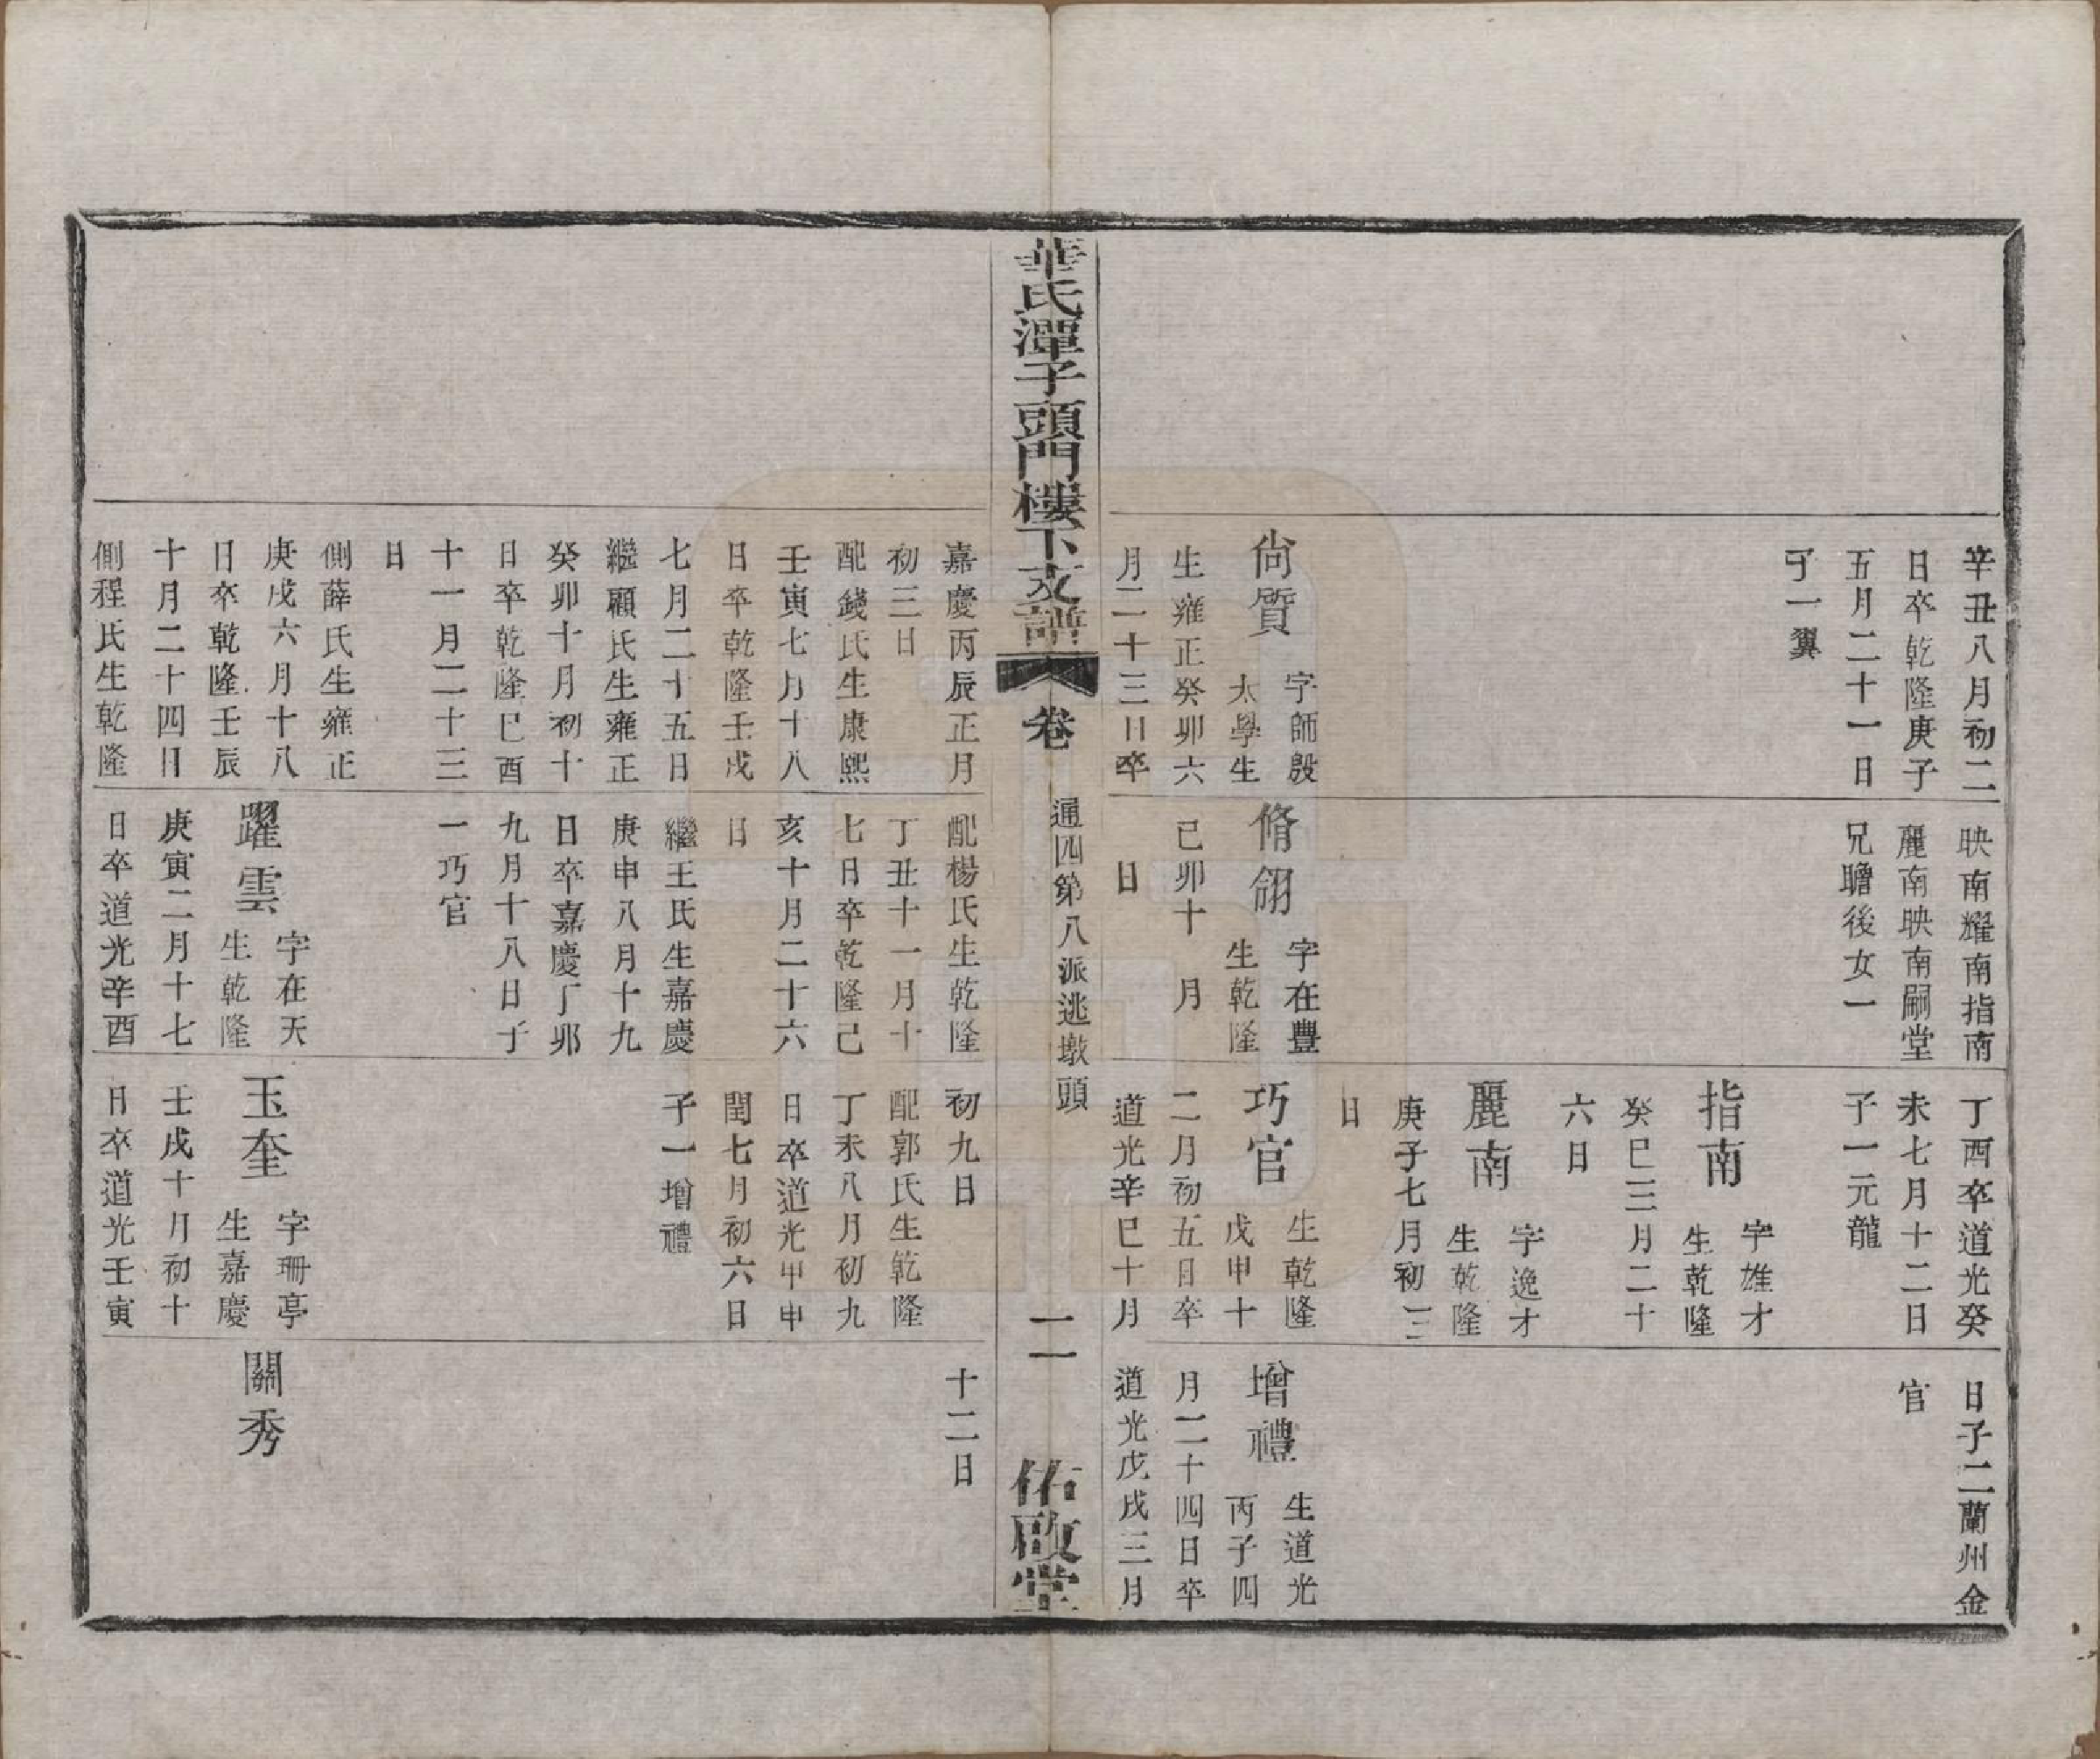 辛丑八月初二
日卒乾隆庚子
五月二十一日
子一翼
尙質
字師殷
太學生
生雍正癸卯六
月二十三日卒
映南耀南指南
麗南映南嗣堂
兄聸後女一
脩翎
字在豐
生乾隆
己卯十 月
日
丁酉卒道光癸
未七月十二日
子一元龍
指南
字雄才
生乾隆
癸巳三月二十
六日
麗南
字逸才
生乾隆
庚子七月初三
日
巧官
生乾隆
戊申十
二月初五日卒
道光辛巳十月
日子二蘭州金
官
增禮
生道光
丙子四
月二十四日卒
道光戊戌三月
華氏潭子頭門樓下支譜
卷
通四第八派逃墩頭
二
佑啟堂
嘉慶丙辰正月
初三日
配錢氏生康熙
壬寅七月十八
日卒乾隆壬戌
七月二十五日
繼顧氏生雍正
癸卯十月初十
日卒乾隆己酉
十一月二十三
日
側薛氏生雍正
庚戌六月十八
日卒乾隆壬辰
十月二十四日
側程氏生乾隆
配楊氏生乾隆
丁丑十一月十
七日卒乾隆己
亥十月二十六
日
繼王氏生嘉慶
庚申八月十九
日卒嘉慶丁卯
九月十八日子
一巧官
躍雲
字在天
生乾隆
庚寅二月十七
日卒道光辛酉
初九日
配郭氏生乾隆
丁未八月初九
日卒道光甲申
閏七月初六日
子一增禮
玉奎
字珊亭
生嘉慶
壬戌十月初十
日卒道光壬寅
十二日
關秀